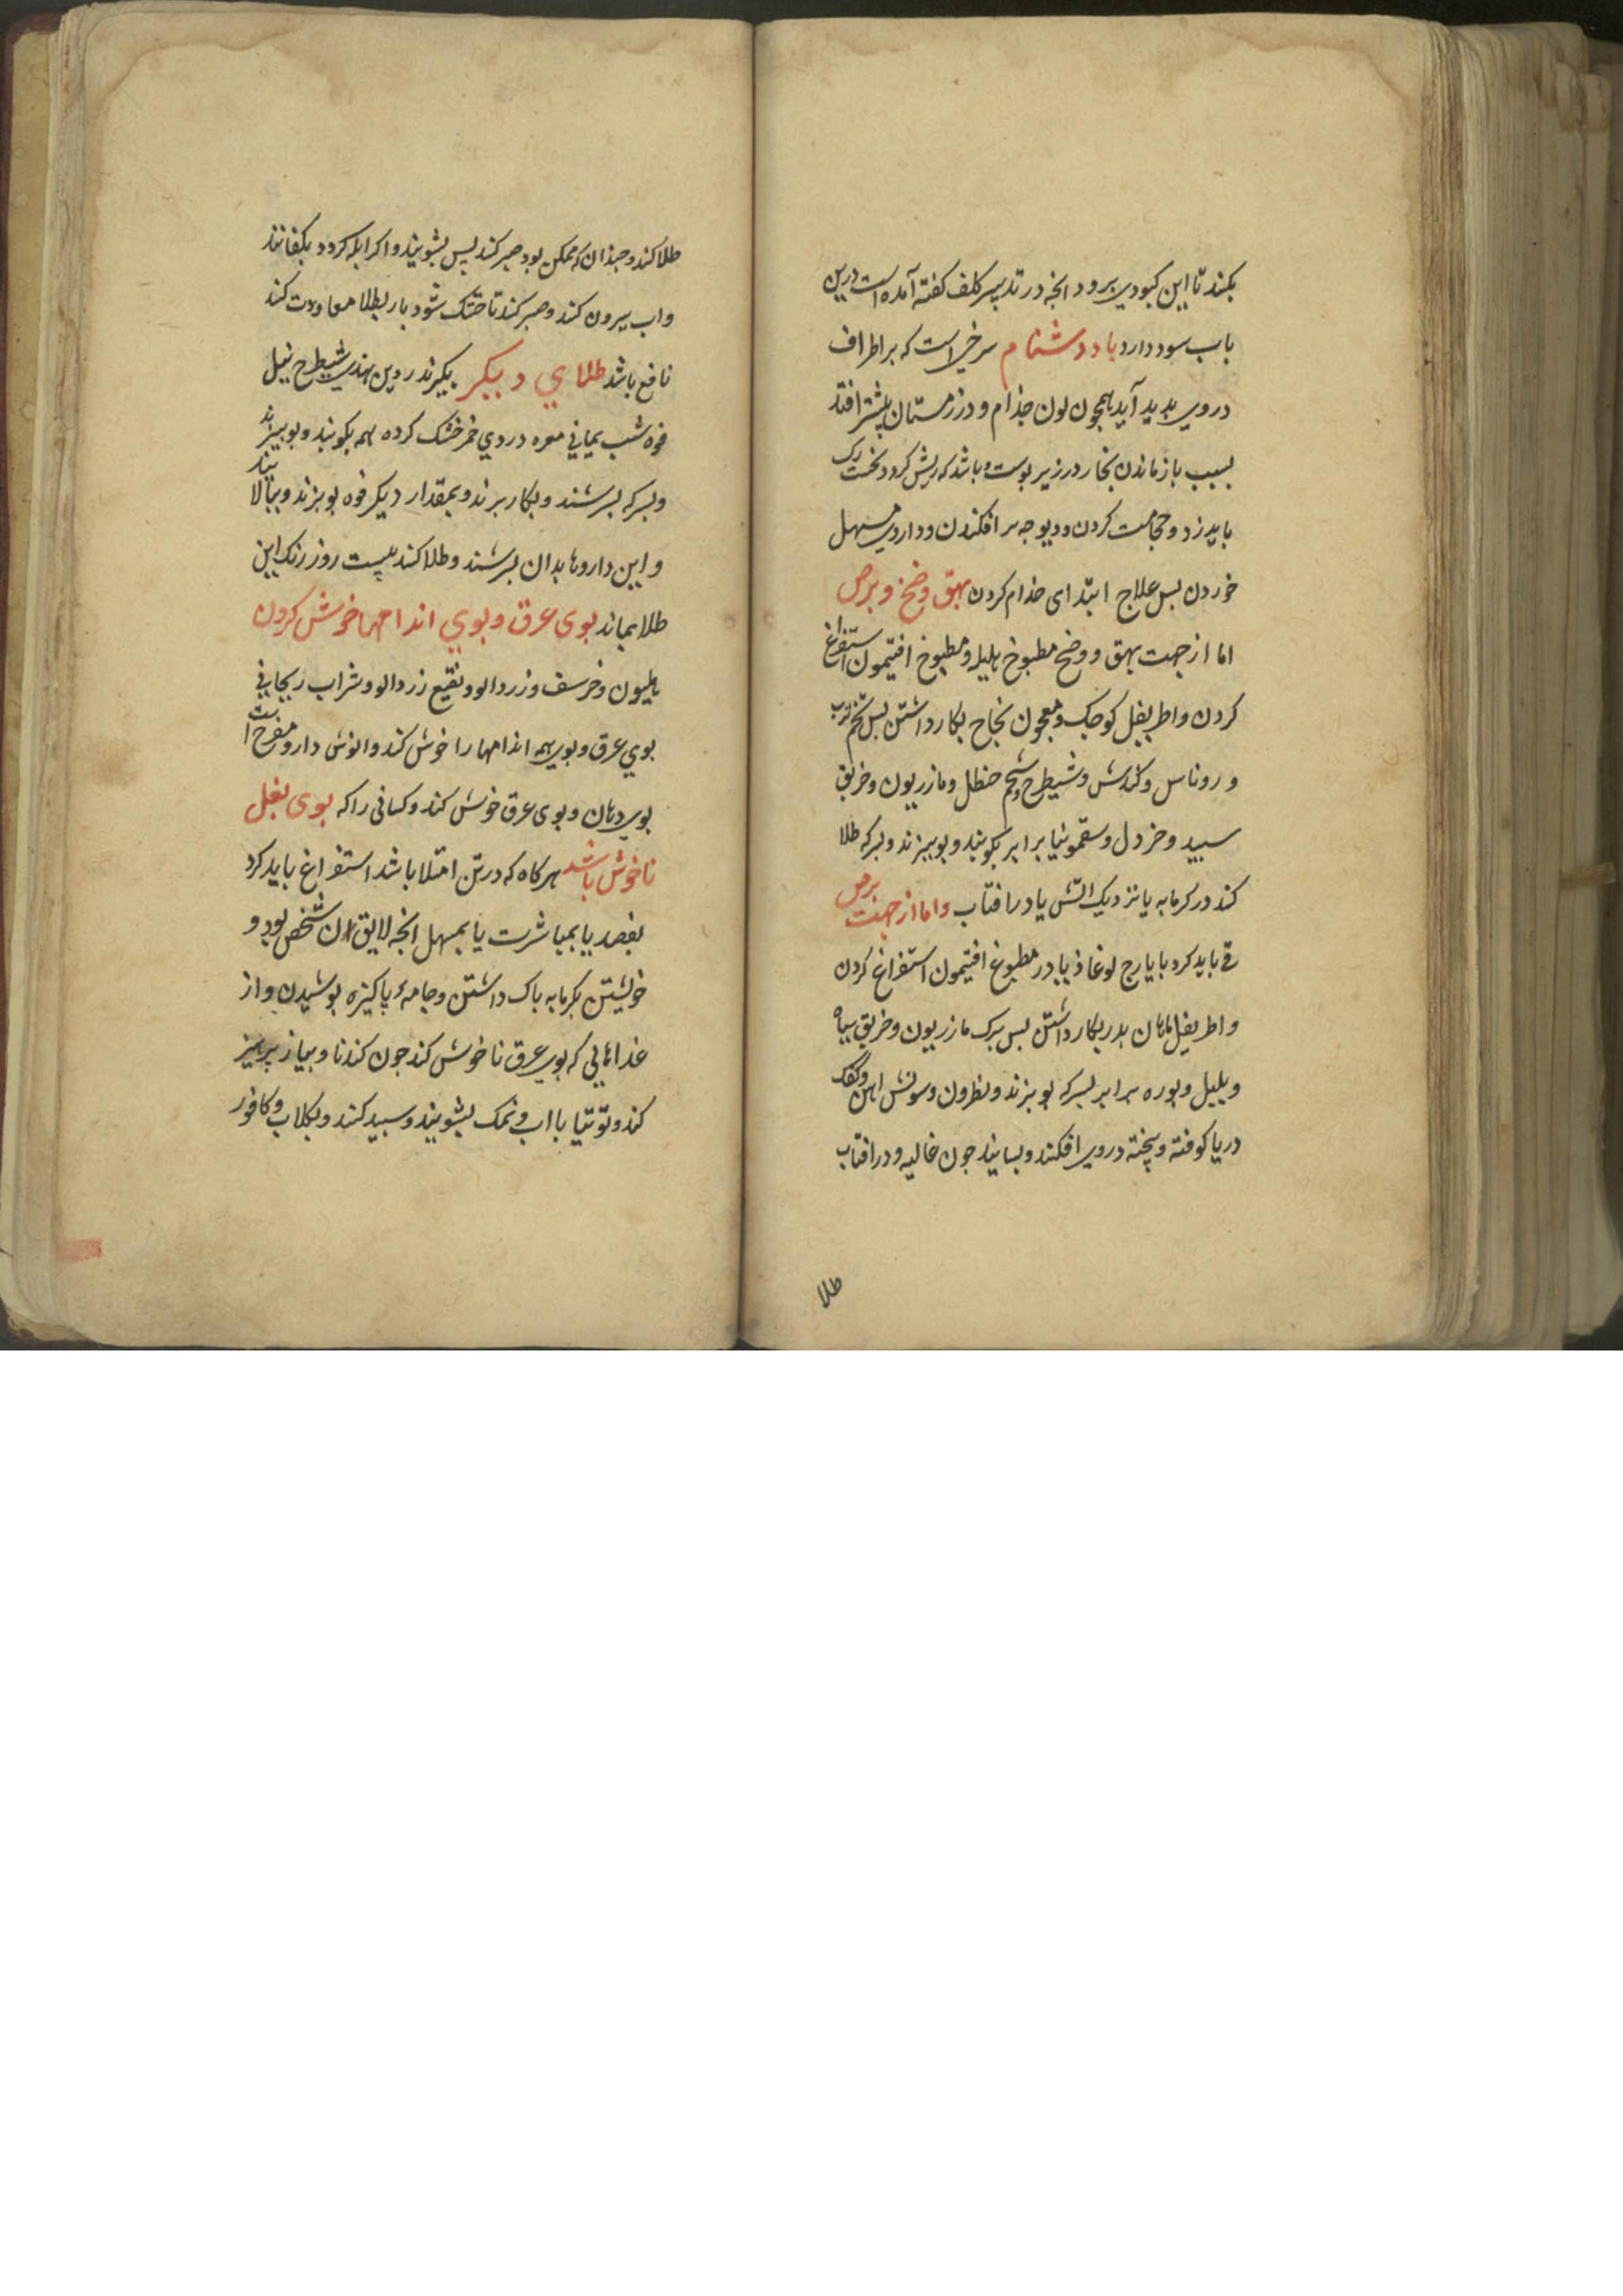 بکنند تا این کبودی برود و انجه در تدبیر کلف کفته آمده است درین
باب سود دارد باد دشنام سرخی است که بر اطراف
در روی بدید آید همچون لون جذام و در زمستان بیشتر افتد
بسبب باز ماندن بخار در زیر بوست و باشد که ریش کردد نخست رک
باید زد و حجامت کردن و دیوجه بر افکندن و داروی مسهل
خوردن بس علاج ابتدای جذام کردن بهق وضح و برص
اما از جهت بهق و وضح مطبوخ هلیله و مطبوخ افتیمون استفراغ
کردن و اطریفل کوجک و معجون نجاح بکار داشتن بس تخم ترب
و روناس و کندش و شیطرج و شحم حنظل و مازریون و خربق
سبید و خردل و سقمونیا برابر بکوبند و بوبیزند و بسرکه طلا
کند در کرمابه یا نزدیک اتش یا در افتاب و اما از جهت برص
قی باید کرد با یارج لوغاذیا در مطبوخ افتیمون استفراغ کردن
و اطریفل بکار داشتن بس برک مازریون و خربق سیاه
و بلبل و بوره برابر بسرکه بوبزند و نطرون و سونش اهن و کفک
دریا کوفته و بیخته در وی افکنند و بسایند جون غالیه و در افتاب
طلا
طلا کند و جندان که ممکن بود صبر کند پس بشویند و اکر ابله کردد بکفانند
و اب بیرون کند و صبر کند تا خشک شود باز بطلا معاودت کند
نافع باشد طلای دیکر بکیرند روین هندی شیطرج نیل
فوه شب یمانی مغره دردی خمر خشک کرده همه بکوبند و بوبیزند
و بسرکه بسرشند و بکار برند و بمقدار دیکر فوه بوبزند و ببالایند
و این داروها بدان بسرشند و طلا کند بیست روز رنک این
طلا بماند بوی عرق و بوی اندامها خوش کردن
هلیون و خرسف و زردالو و نقیع زردالو و شراب ریحانی
بوی عرق و بوی همه اندامها را خوش کند و انوش دارو مفرح است
بوی دهان و بوی عرق خوش کند و کسانی را که بوی بغل
ناخوش باشد هر کاه که در تن امتلا باشد استفراغ باید کرد
بفصد یا بمباشرت یا بمسهل انجه لایق ان شخص بود و
خویشتن بکرمابه باک داشتن و جامهٔ پاکیزه بوشیدن و از
غذاهایی که بوی عرق ناخوش کند جون کندنا و بیاز پرهیز
کند و توتیا با اب و نمک بشویند و سبید کنند و بکلاب و کافور